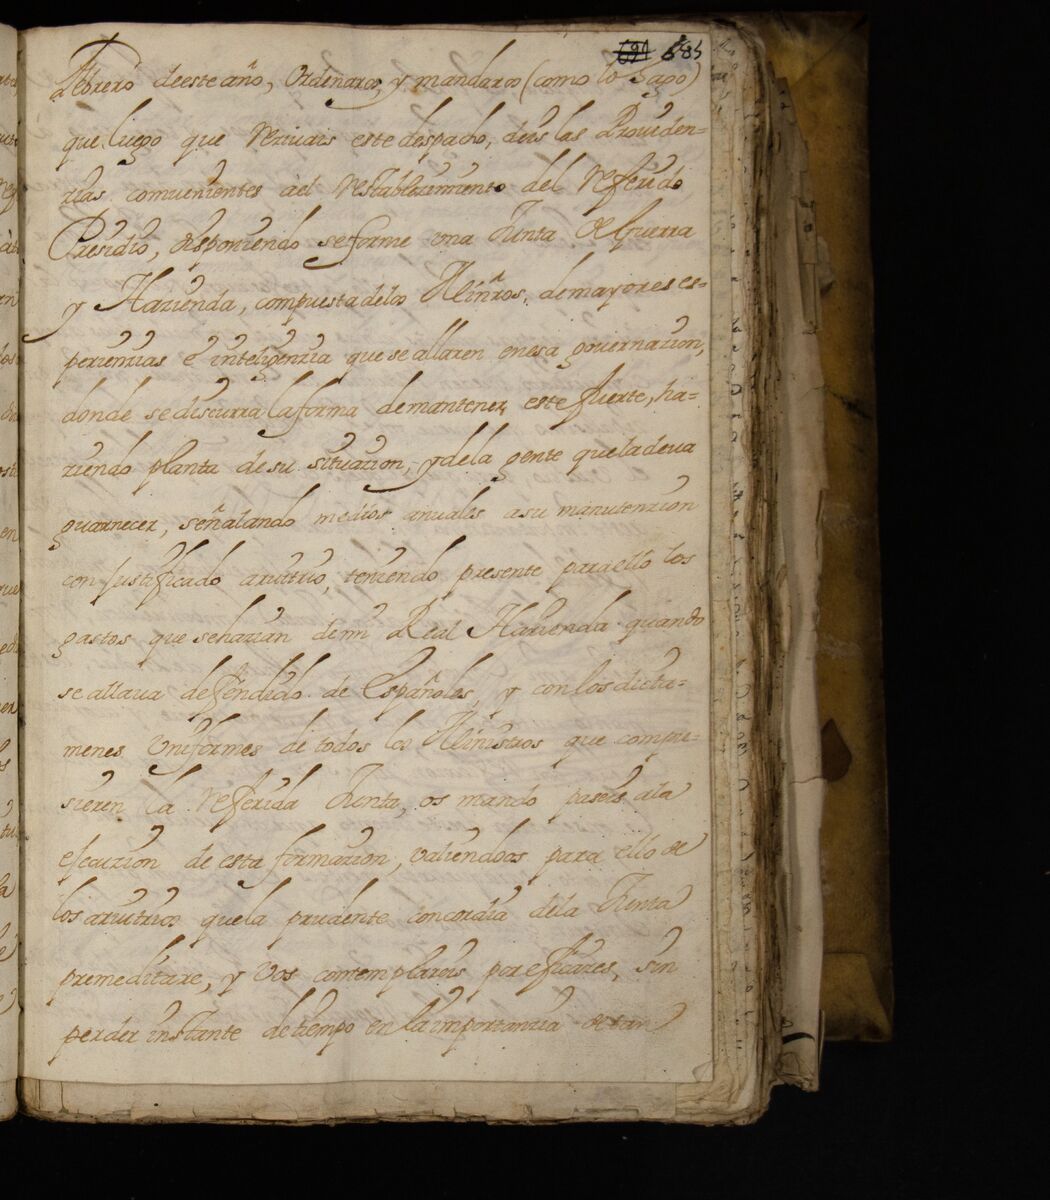 691 685
Febrero deeste año, Ordenaros, y mandaros (como lo hago)
que luego que reciuais este despacho, deis las Prouiden-
cias comuenientes ael restablecimiento del referido
Presidio, disponiendo seforme vna Junta de Guerra
y Hacienda, compuesta delos Minros, de mayores es-
periencias e inteligencia que se allaren enesa governacion,
donde se discurra la forma demantener este fuerte, ha-
ciendo planta de su situacion, y dela gente que la deua
guarnecer, señalando medios anuales a su manutencion
con Justificado aruitrio, teniendo presente para ello los
gastos que se hacian de mi Real Hacienda quando
se allaua defendido de Españoles, y con los dicta-
menes Vniformes de todos los Ministros que compu-
sieren la referida Junta, os mando paseis ala
ejecucion de esta formacion, valiendoos para ello de
los aruitrios que la prudente concordia dela Junta
premeditare, y Vos contemplareis por eficaces, sin
perder instante de tiempo en la importancia de tan